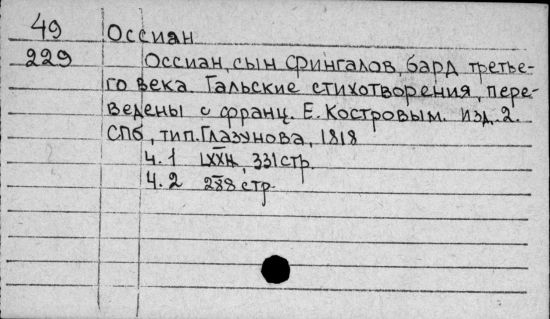 49 Оссиан
229 Оссиан, сын Фингалов, бард третье-
го века. Гальские стихотворения, пере-
ведены с франц. Е. Костровым. изд. 2.
СПб, тип. Глазунова, 1818
ч. 1 LXXII, 331 стр.
ч. 2 288 стр.